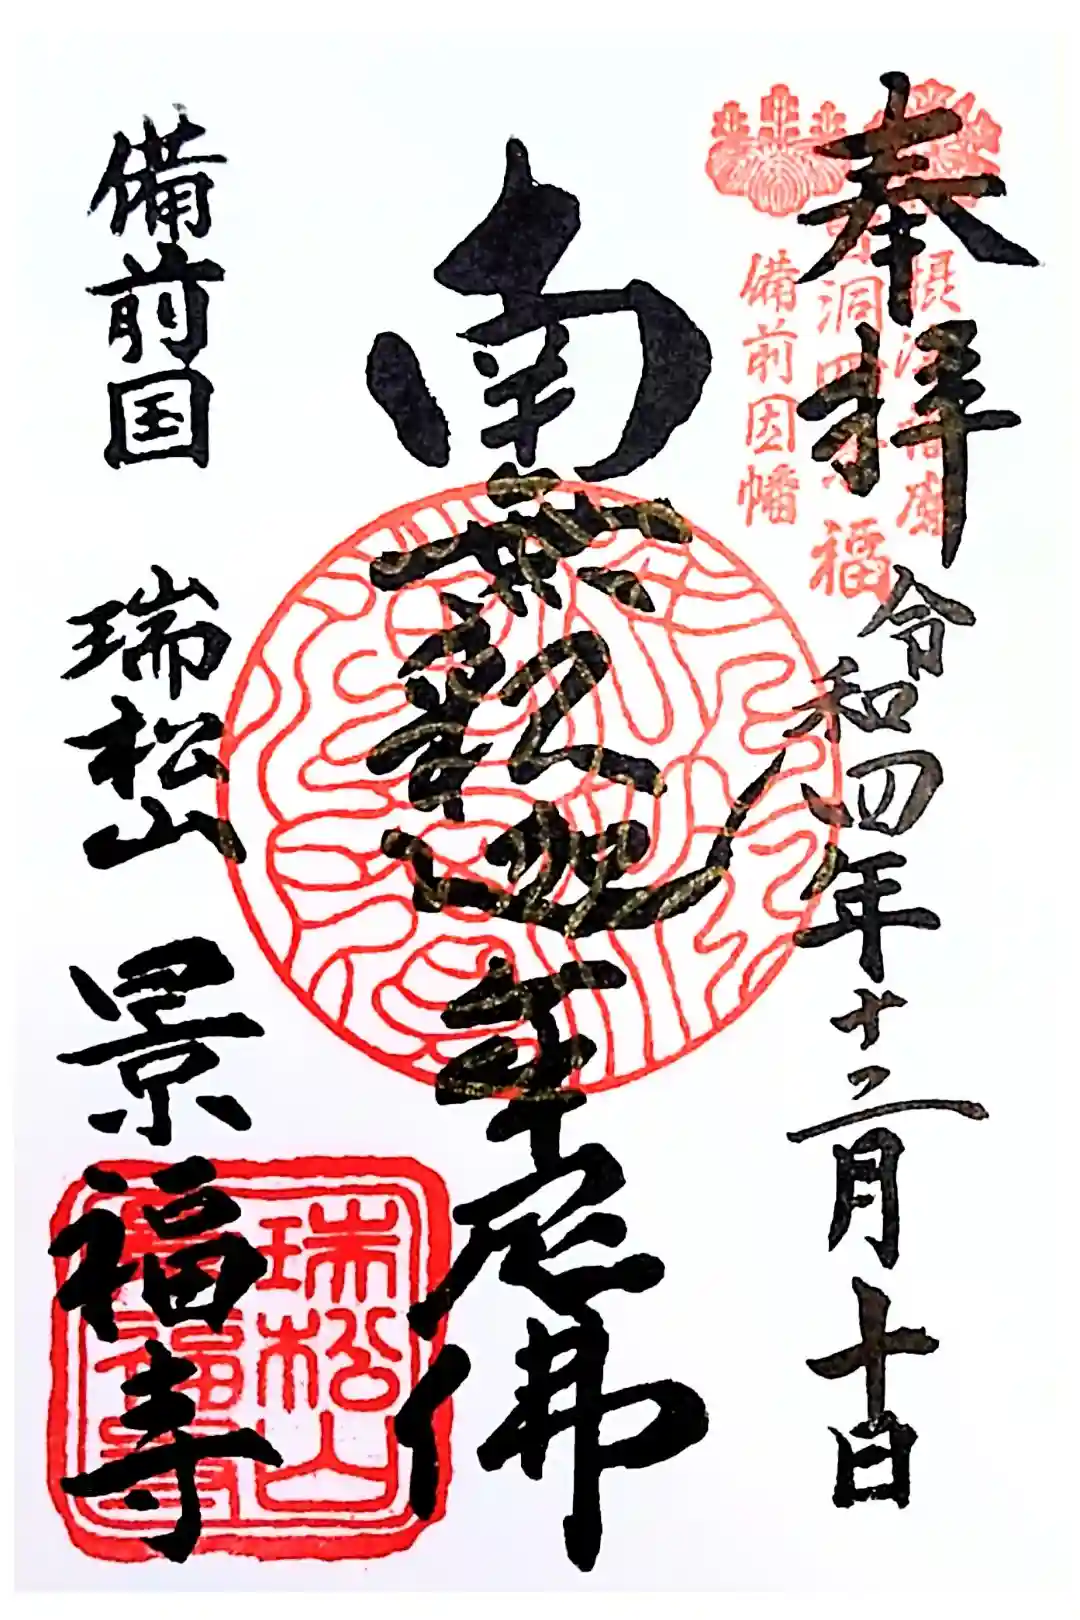 奉拝
令和四年十二月十日
備前因幡
福
南無釈迦牟尼佛
備前国
瑞松山
景福寺
瑞松山
景福寺